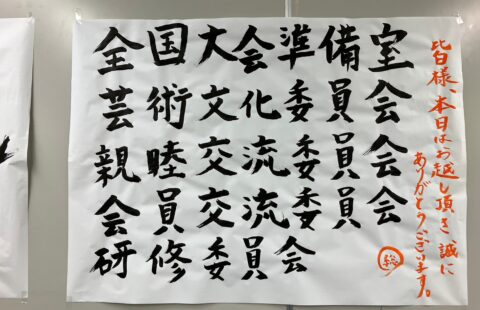 全国大会準備室
芸術文化委員会
親睦交流委員会
会員交流委員会
研修委員会
皆様、本日はお越し頂き誠に
ありがとうございます。